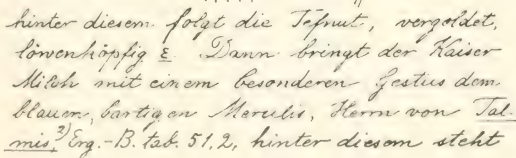 hinter diesem folgt die Tefnut, vergoldet,
löwenköpfig ε. Dann bringt der Kaiser
Milch mit einem besonderen Gestus dem
blauen, bartigen Merulis, Herrn von Tal-
mis,²⁾ Erg.-B. tab. 51,2, hinter diesem steht